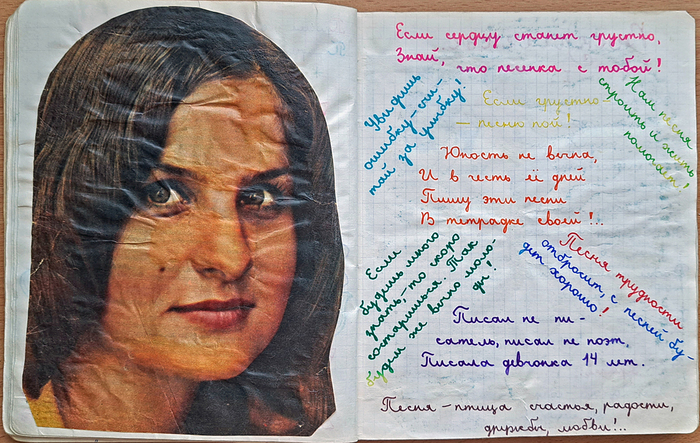 Если сердцу станет грустно,
Знай, что песенка с тобой!
Увидишь
ошибку – счи-
тай за улыбку!
Если грустно –
– песню пой!
Нам песня
строить и жить
помогает!
Юность не вечна,
И в честь её дней
Пишу эти песни
В тетрадке своей!..
Если
будешь много
знать, – то скоро
состаришься. Так
будем же вечно моло-
ды!
Песня трудности
отбросит, с песней бу-
дет хорошо!
Писал не пи-
сатель, писал не поэт,
Писала девчонка 14 лет.
Песня – птица счастья, радости,
дружбы, любви!..